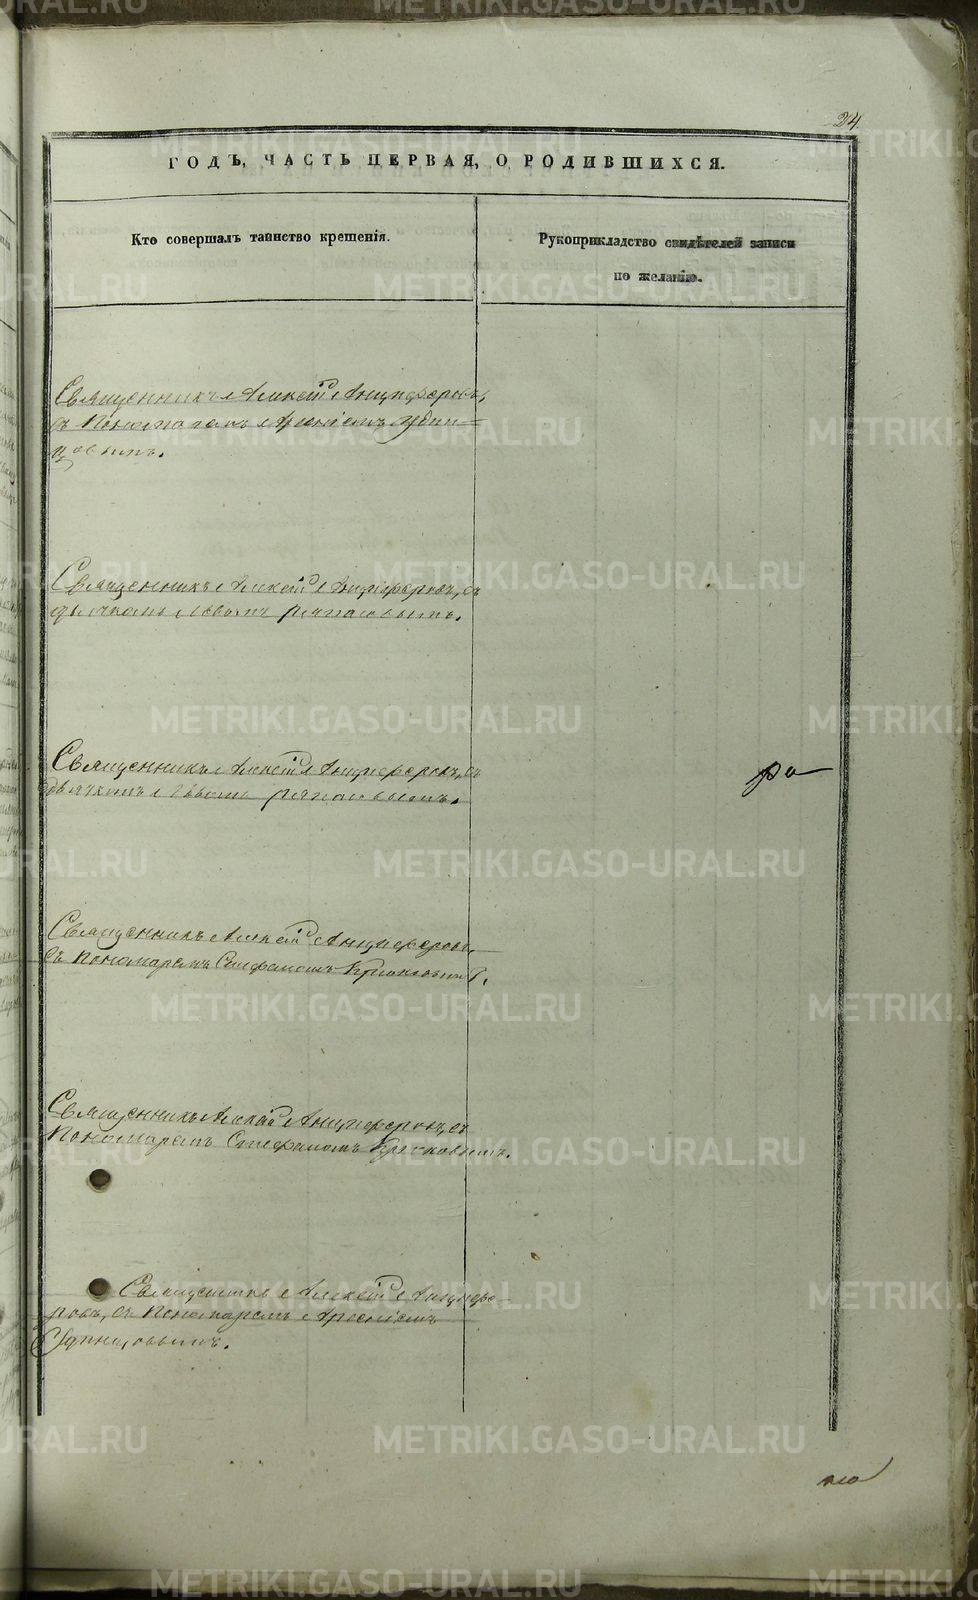 24.
ГОДЪ, ЧАСТЬ ПЕРВАЯ, О РОДИВШИХСЯ.
Кто совершалъ таинство крещенія.
Рукоприкладство свидѣтелей записи
по желанію.
Священникъ Алексій Анцыферовъ,
съ Пономаремъ Арсеніемъ Удин=
цовымъ.
Священникъ Алексій Анцыферовъ, съ
дьячкомъ Львомъ
Священникъ Алексій Анцыферовъ, съ
дьячкомъ Львомъ
ро
Священникъ Алексій Анцыферовъ,
съ Пономаремъ Стефаномъ Крюковымъ.
Священникъ Алексій Анцыферовъ, съ
Пономаремъ Стефаномъ Крюковымъ.
Священникъ Алексій Анцыфе-
ровъ, съ Пономаремъ Арсеніемъ
Удинцовымъ.
METRIKI.GASO-URAL.RU